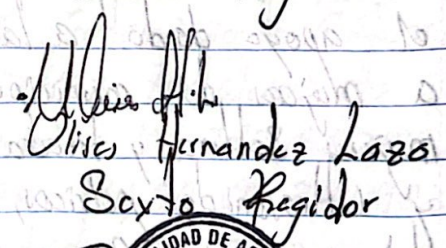 Ulises H. L.
Ulises Hernandez Lazo
Sexto Regidor
IDAD DE A